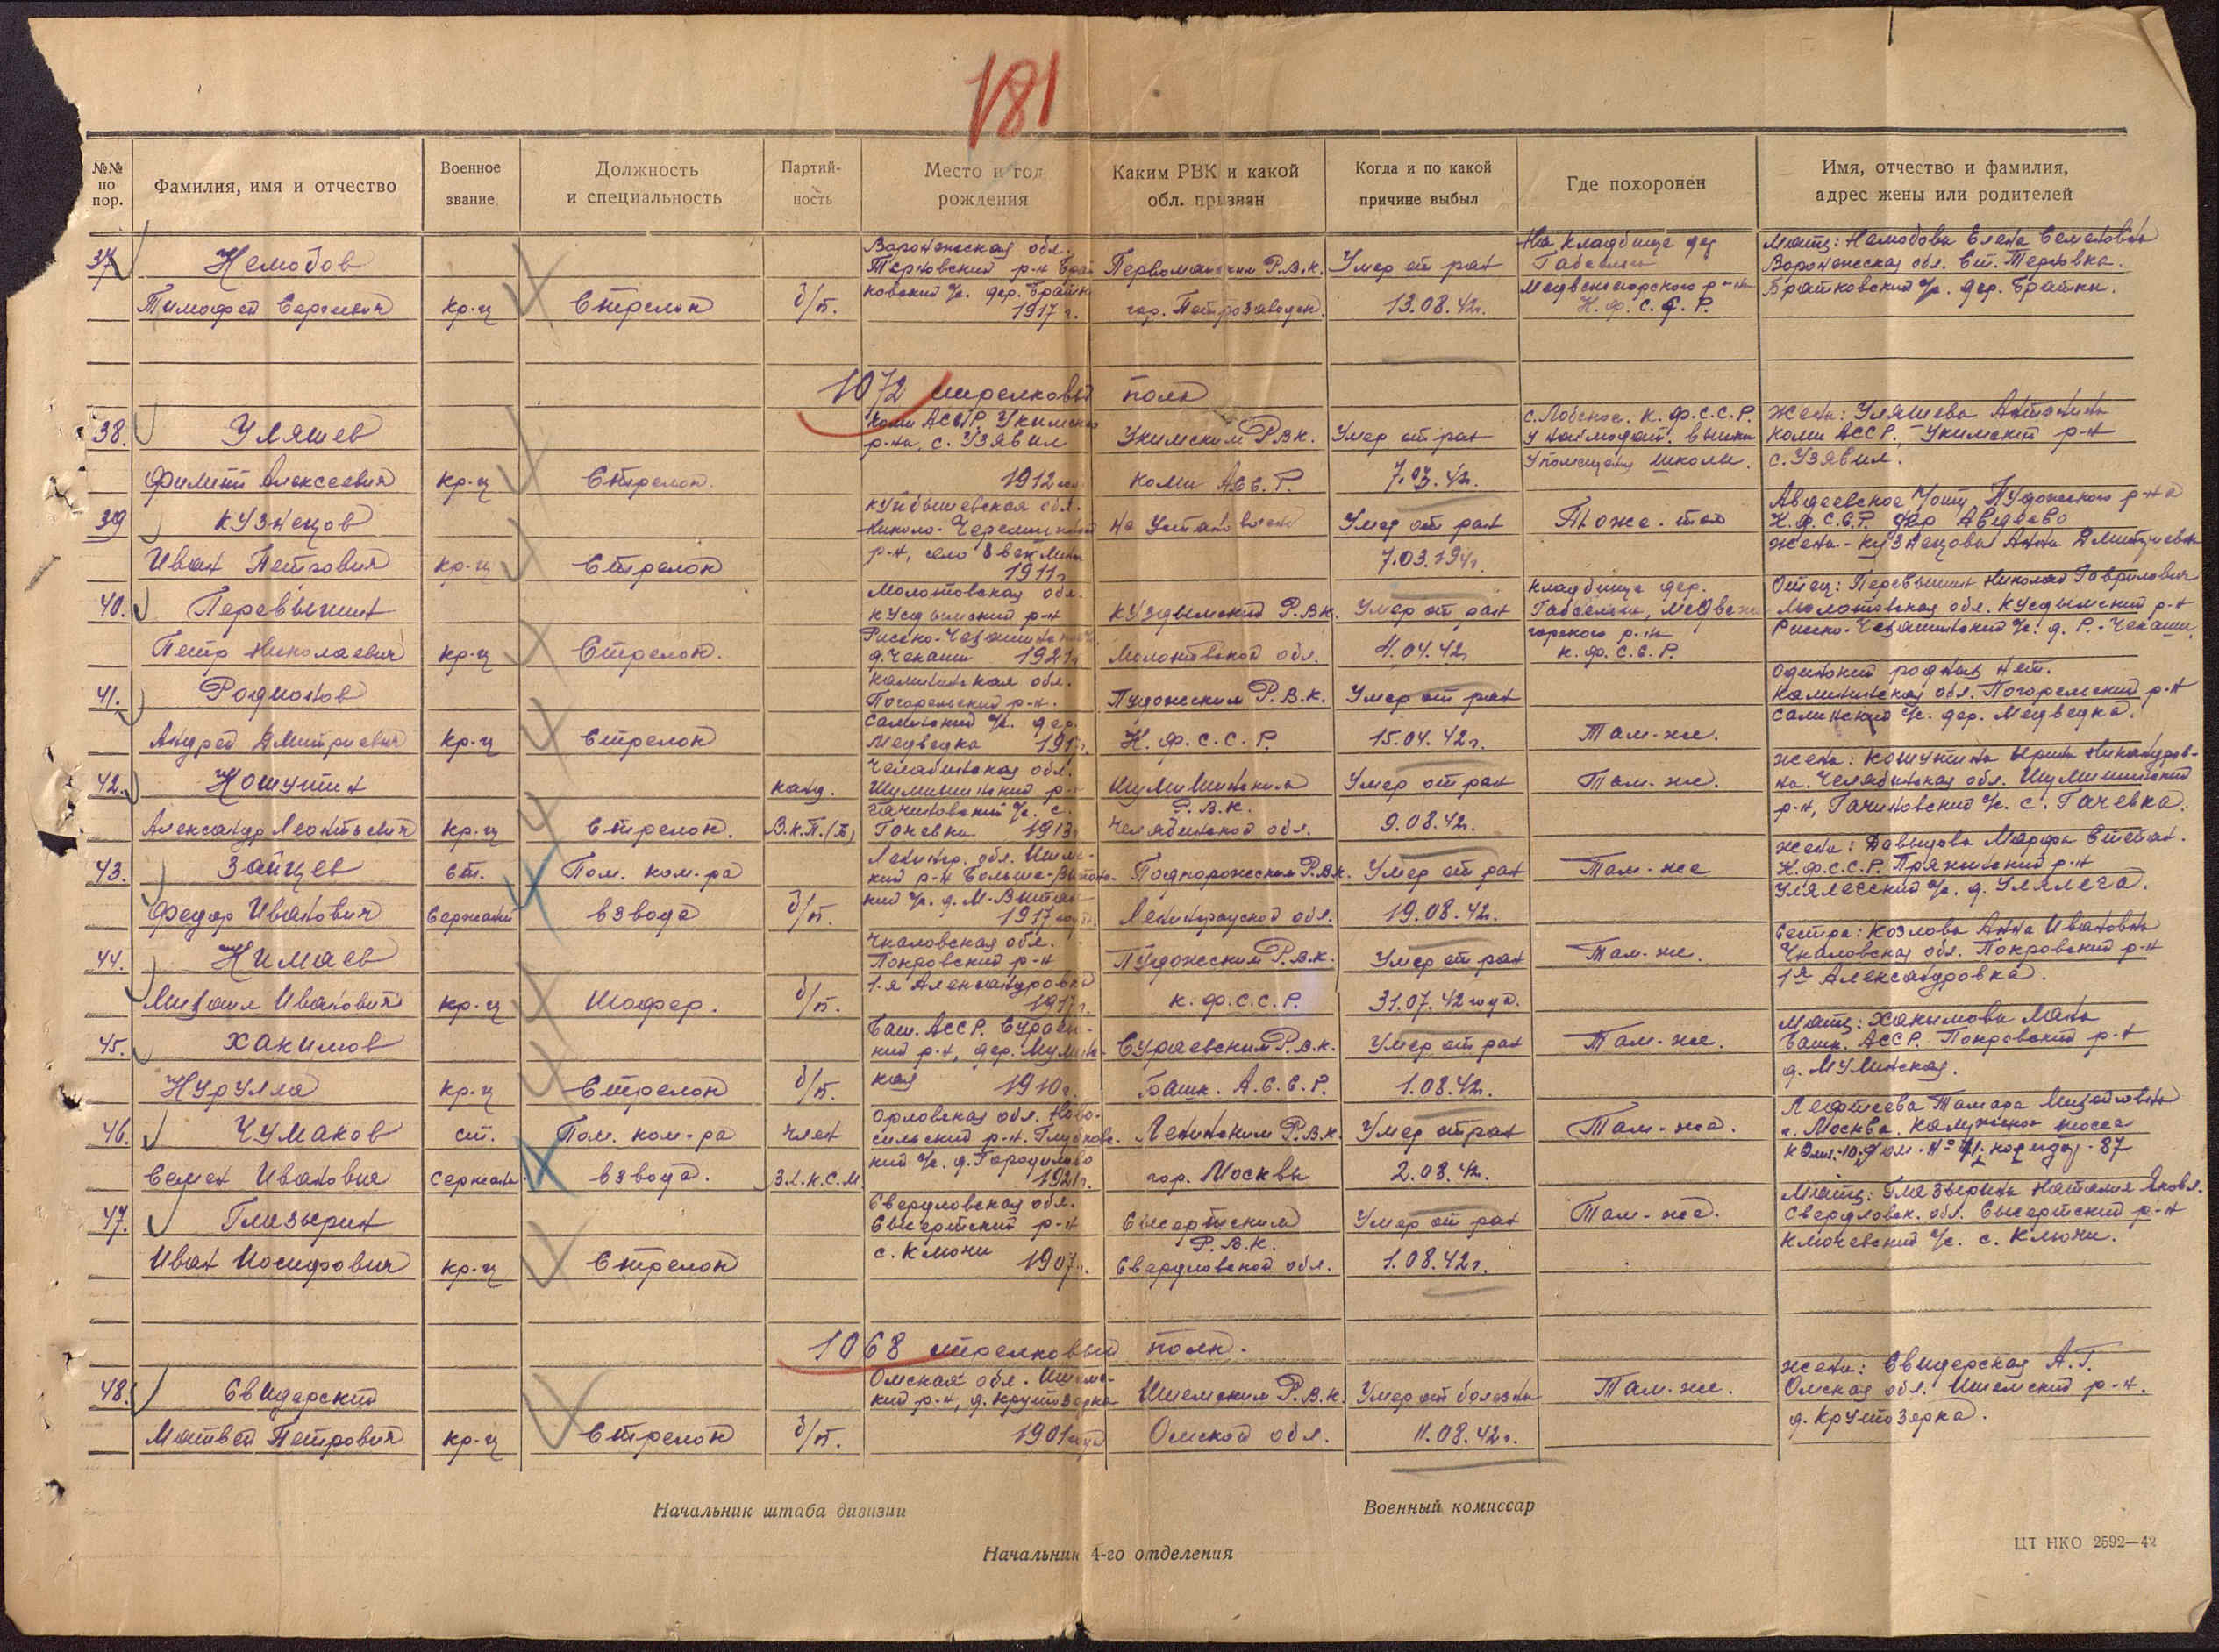 181
№№ по пор.
Фамилия, имя и отчество
Военное звание
Должность и специальность
Партий-ность
Место и год рождения
Каким РВК и какой обл. призван
Когда и по какой причине выбыл
Где похоронен
Имя, отчество и фамилия, адрес жены или родителей
37
Немобов
Тимофей Сергеевич
кр-ц
Стрелок
б/п.
Воронежская обл.
Терновский р-н Брат
ковский с/с. дер. Братки
1917 г.
Первомайским Р.В.К.
гор. Петрозаводск.
Умер от ран
13.08.42г.
На кладбище дер
Габсельга
Медвежегорского р-на
К. Ф. С. С. Р.
Мать: Немобова Елена Семеновна
Воронежская обл. ст. Терновка.
Братковский с/с. дер. Братки.
1072 стрелковый полк
38.
Уляшев
Филипп Алексеевич
кр-ц
Стрелок.
Коми АССР.
р-на, с.
1912 год
РВК.
Коми АССР.
Умер от ран
7.03.42г.
с. Лобское. К.Ф.С.С.Р.
У помещения школы.
Жена: Уляшева Антонина
Коми АССР. р-н
39
Кузнецов
Иван Петрович
кр-ц
Стрелок
Куйбышевская обл.
Николо-Черемшанский
р-н, село
1911г
Не установлен
Умер от ран
7.03.194 г.
Авдеевское Пудожского р-на
К.Ф.С.С.Р. дер Авдеево
Жена - Кузнецова Анна Дмитриевна
40.
Перевышин
Петр Николаевич
кр-ц
Стрелок.
Молотовская обл.
р-н
д. Чекаши 1921г.
Р.В.К.
Молотовской обл.
Умер от ран
4.04.42г
Кладбище дер.
Габсельга, Медвеже
горского р-на
К.Ф.С.С.Р.
Отец: Перевышин Николай Гаврилович
Молотовская обл. р-н
41.
Родионов
Андрей Дмитриевич
кр-ц
Стрелок
Калининская обл.
Погорельский р-н.
Салинский с/с. дер.
Медведка
Пудожским Р.В.К.
К.Ф.С.С.Р.
Умер от ран
15.04.42г.
Там-же.
Одинокий родных нет.
Калининская обл. Погорельский р-н
Салинский с/с. дер. Медведка.
42.
Кошутин
Александр Леонтьевич
кр-ц
Стрелок.
канд.
В.К.П.(б)
Челябинская обл.
Шумишинский р-н
Гачиновский с/с. с.
1913г
Шумишинским
Р.В.К.
Челябинской обл.
Умер от ран
9.08.42г.
Там-же.
Жена: Кошутина Ирина Никандров-
на. Челябинская обл. Шумишинский
р-н, Гачиновский с/с. с. Гачевка.
43.
Зайцев
Федор Иванович
Ст.
Сержант
Пом. ком-ра
взвода
б/п.
Ленингр. обл.
1917 года.
Подпорожским Р.В.К.
Ленинградской обл.
Умер от ран
19.08.42г.
Там-же
Жена: Давыдова Марфа Степан.
К.Ф.С.С.Р. Пряжинский р-н
Улялегский с/с. д. Улялега.
44.
Кимаев
Михаил Иванович
кр-ц
Шофер.
б/п.
Чкаловская обл.
Покровский р-н
1-я Александровка
1917г.
Пудожским Р.В.К.
К.Ф.С.С.Р.
Умер от ран
31.07.42 года.
Там-же.
Сестра: Козлова Анна Ивановна
Чкаловская обл. Покровский р-н
1я Александровка.
45.
Хакимов
Нурулла
кр-ц
Стрелок
б/п.
Баш. АССР. Бураев-
кий р-н, дер. Мулин-
кая 1910г.
Бураевским Р.В.К.
Башк. А.С.С.Р.
Умер от ран
1.08.42г.
Там-же.
Мать: Хакимова Мана
Башк. АССР. Покровский р-н
д. Мулинская.
46.
Чумаков
Семен Иванович
ст.
Сержант
Пом. ком-ра
взвода.
член
В.Л.К.С.М
Орловская обл. Ново-
сильский р-н. Глубков-
кий с/с. д. Городилово
1921г.
Ленинским Р.В.К.
гор. Москвы
Умер от ран
2.08.42г.
Там-же.
Лефтеева Тамара Михайловна
г. Москва. Калужское шоссе
47.
Глазырин
Иван Иосифович
кр-ц
Стрелок
Свердловская обл.
Сысертский р-н
с. Ключи 1907г.
Сысертским
Р.В.К.
Свердловской обл.
Умер от ран
1.08.42г.
Там-же.
Мать: Глазырина Наталия Яковл.
Свердловск. обл. Сысертский р-н
Ключевский с/с. с. Ключи.
1068 стрелковый полк.
48.
Свидерский
Матвей Петрович
кр-ц
Стрелок
б/п.
Омская обл. Ишимс-
кий р-н, д. Крутозерка
1901 года
Ишемским Р.В.К.
Омской обл.
Умер от болезни
11.08.42г.
Там-же.
Жена: Свидерская А.Г.
Омская обл. Ишемский р-н.
д. Крутозерка.
Начальник штаба дивизии
Военный комиссар
Начальник 4-го отделения
ЦТ НКО 2592—42